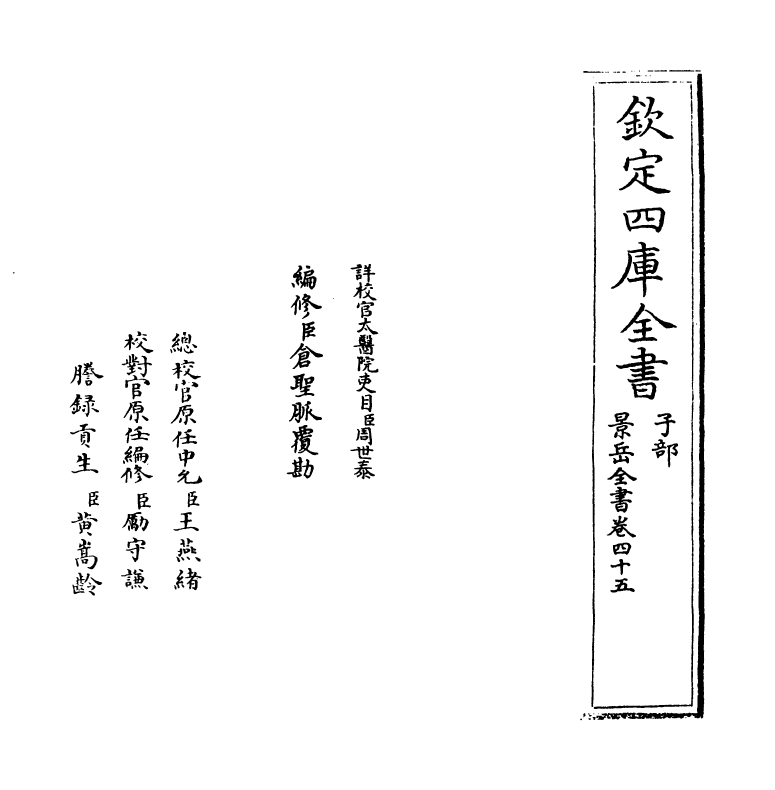 欽定四庫全書
子部
景岳全書卷四十五
詳校官太醫院吏目臣周世泰
編修臣倉聖脈覆勘
總校官原任中允臣王燕緒
校對官原任編修臣勵守謙
謄録貢生臣黄嵩齡